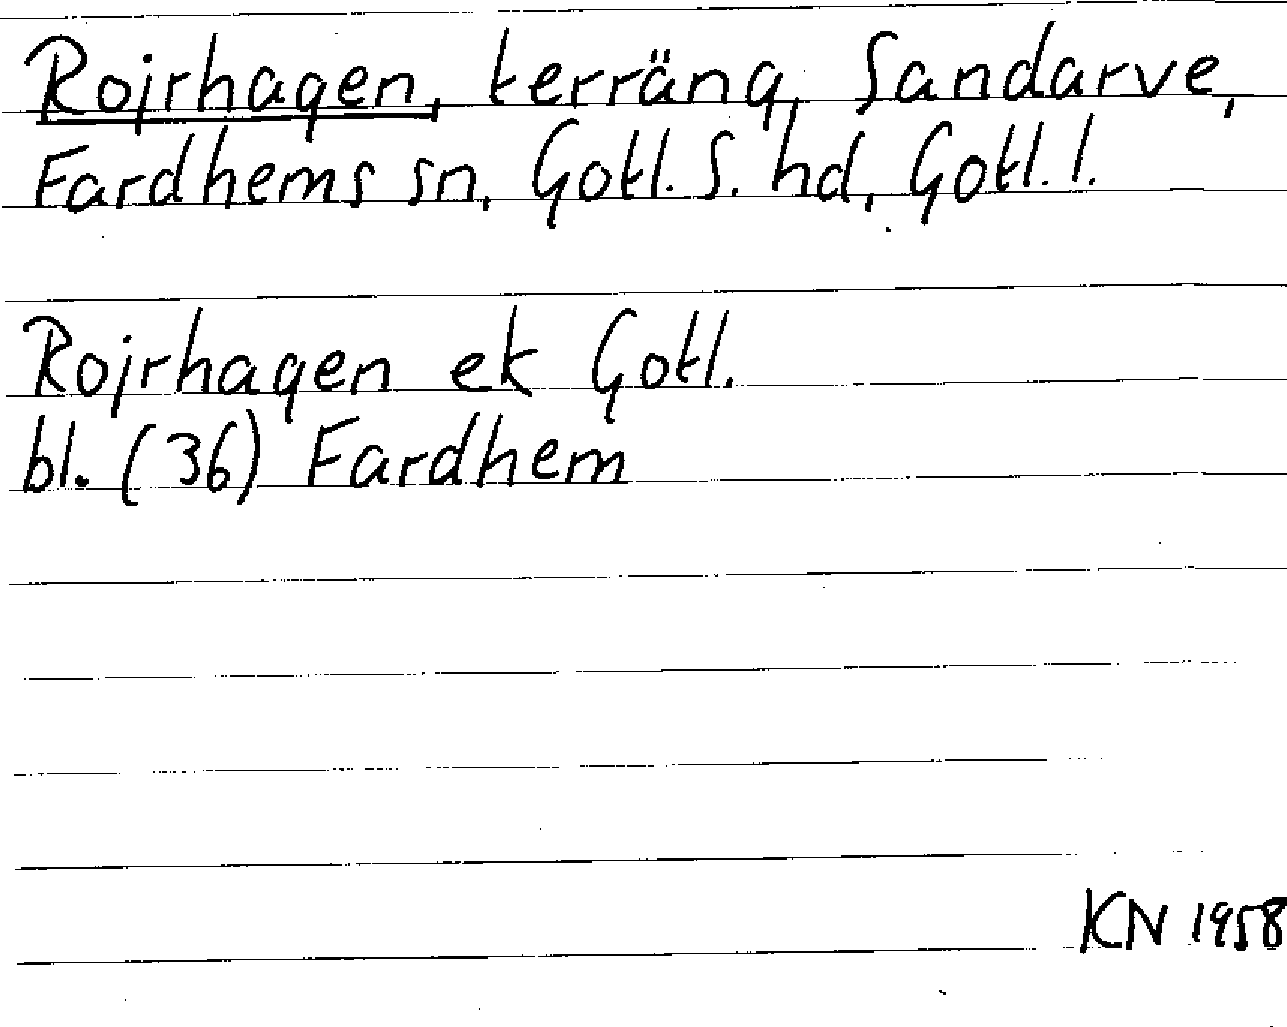 Rojrhagen, terräng, Sandarve,
Fardhems sn, Gotl. S. hd, Gotl. l.
Rojrhagen ek Gotl.
bl. (36) Fardhem
KN 1958